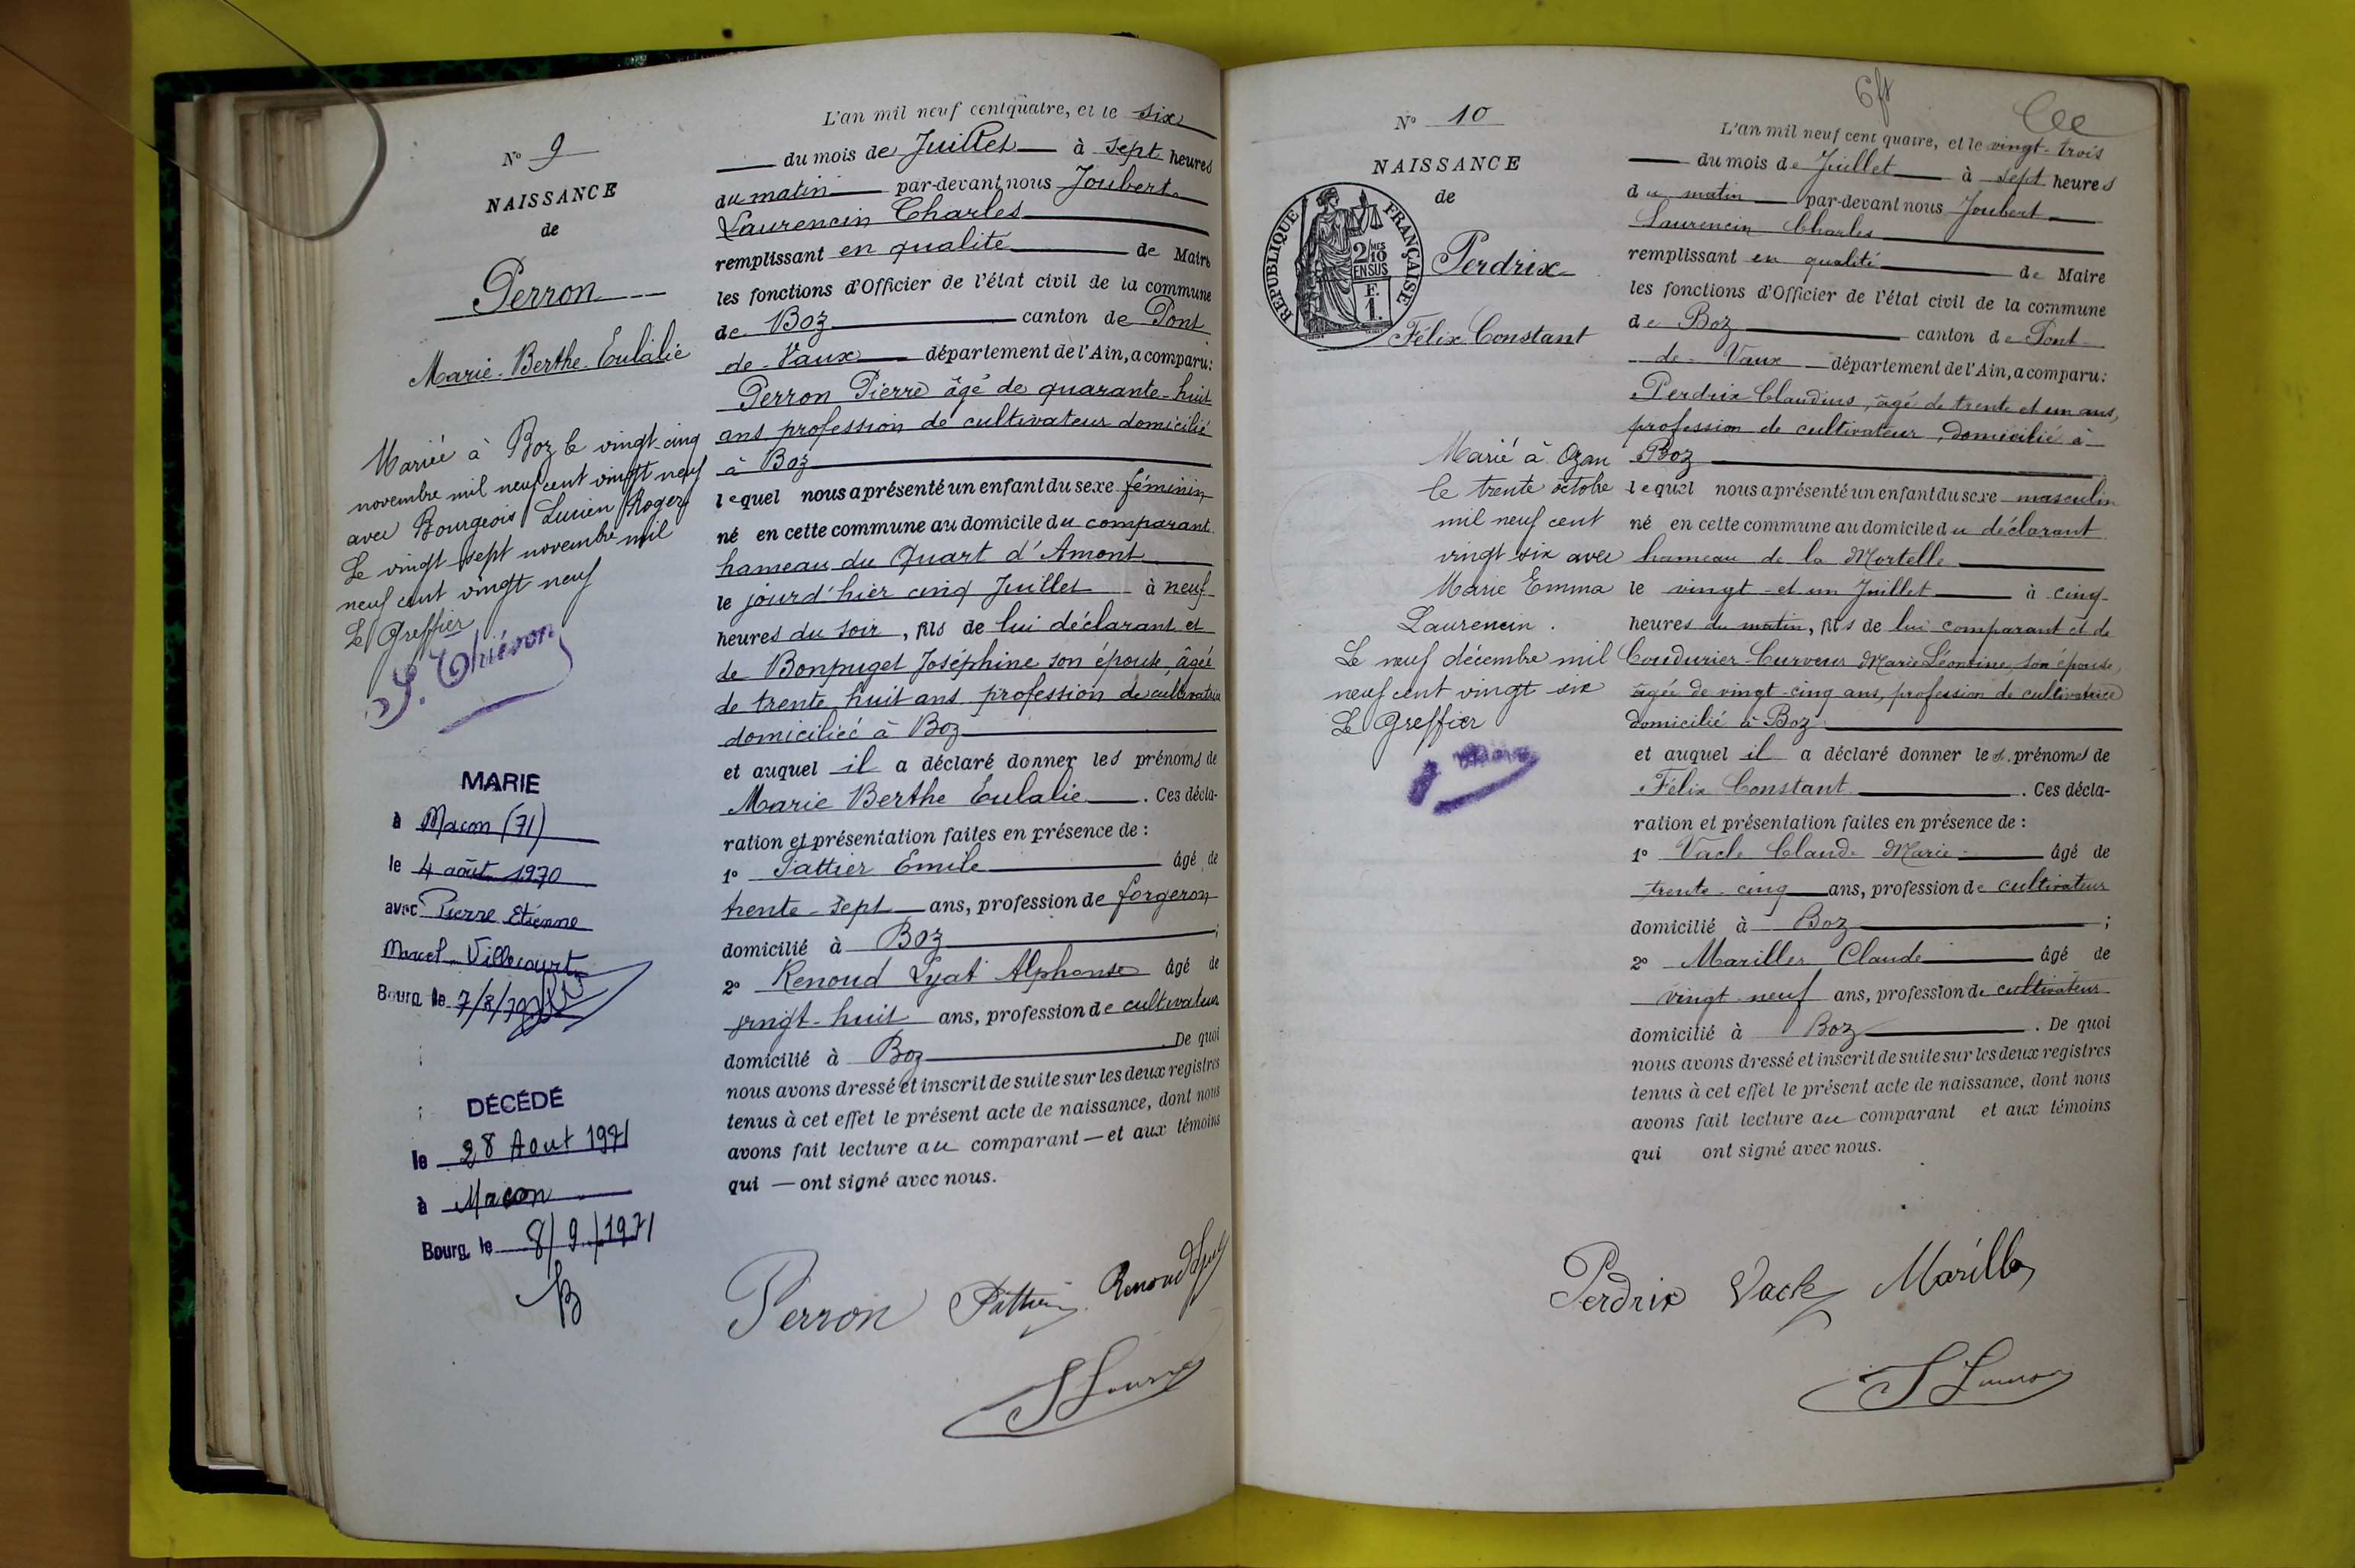 N° 9
NAISSANCE
de
Perron
Marie Berthe Eulalie
Mariée à Boz le vingt-cinq
novembre mil neuf cent vingt neuf
avec Bourgeois Lucien Roger
Le vingt sept novembre mil
neuf cent vingt neuf
Le Greffier
MARIE
à Macon (71)
le 4 août 1970
avec Pierre Etienne
Marcel Villecourt
Bourg le 7/8/70
DÉCÉDÉ
le 28 Aout 1971
à Macon
Bourg le 8/9/1971
L'an mil neuf cent quatre, et le six
du mois de Juillet à sept heures
du matin par-devant nous Joubert
Laurencin Charles
remplissant en qualité de Maire
les fonctions d'Officier de l'état civil de la commune
de Boz canton de Pont
de-Vaux département de l'Ain, a comparu:
Perron Pierre âgé de quarante-huit
ans profession de cultivateur domicilié
à Boz
lequel nous a présenté un enfant du sexe féminin
né en cette commune au domicile du comparant
hameau du Quart d'Amont
le jourd'hier cinq Juillet à neuf
heures du soir, fils de lui déclarant et
de Bonpuget Joséphine son épouse, âgée
de trente huit ans profession de cultivatrice
domiciliée à Boz
et auquel il a déclaré donner les prénoms de
Marie Berthe Eulalie. Ces décla-
ration et présentation faites en présence de :
1° Pattier Emile âgé de
trente-sept ans, profession de forgeron
domicilié à Boz ;
2° Renoud Lyat Alphonse âgé de
vingt-huit ans, profession de cultivateur
domicilié à Boz. De quoi
nous avons dressé et inscrit de suite sur les deux registres
tenus à cet effet le présent acte de naissance, dont nous
avons fait lecture au comparant — et aux témoins
qui — ont signé avec nous.
Perron Pattier Renoud Lyat
N° 10
NAISSANCE
de
Perdrix
Félix Constant
REPUBLIQUE FRANÇAISE
2/10
MES
EN SUS
F.
1.
Marié à Ozan
le trente octobre
mil neuf cent
vingt six avec
Marie Emma
Laurencin.
Le neuf décembre mil
neuf cent vingt six
Le Greffier
L'an mil neuf cent quatre, et le vingt-trois
du mois de Juillet à sept heures
du matin par-devant nous Joubert
Laurencin Charles
remplissant en qualité de Maire
les fonctions d'Officier de l'état civil de la commune
de Boz canton de Pont
de-Vaux département de l'Ain, a comparu:
Perdrix Claudius, âgé de trente et un ans,
profession de cultivateur, domicilié à
Boz
lequel nous a présenté un enfant du sexe masculin
né en cette commune au domicile du déclarant
hameau de la Mortelle
le vingt-et-un Juillet à cinq
heures du matin, fils de lui comparant et de
Coudurier-Curveur Marie Léontine, son épouse,
âgée de vingt-cinq ans, profession de cultivatrice
domicilié à Boz
et auquel il a déclaré donner les prénoms de
Félix Constant. Ces décla-
ration et présentation faites en présence de :
1° Vacle Claude Marie âgé de
trente-cinq ans, profession de cultivateur
domicilié à Boz ;
2° Mariller Claude âgé de
vingt-neuf ans, profession de cultivateur
domicilié à Boz. De quoi
nous avons dressé et inscrit de suite sur les deux registres
tenus à cet effet le présent acte de naissance, dont nous
avons fait lecture au comparant et aux témoins
qui ont signé avec nous.
Perdrix Vacle Mariller